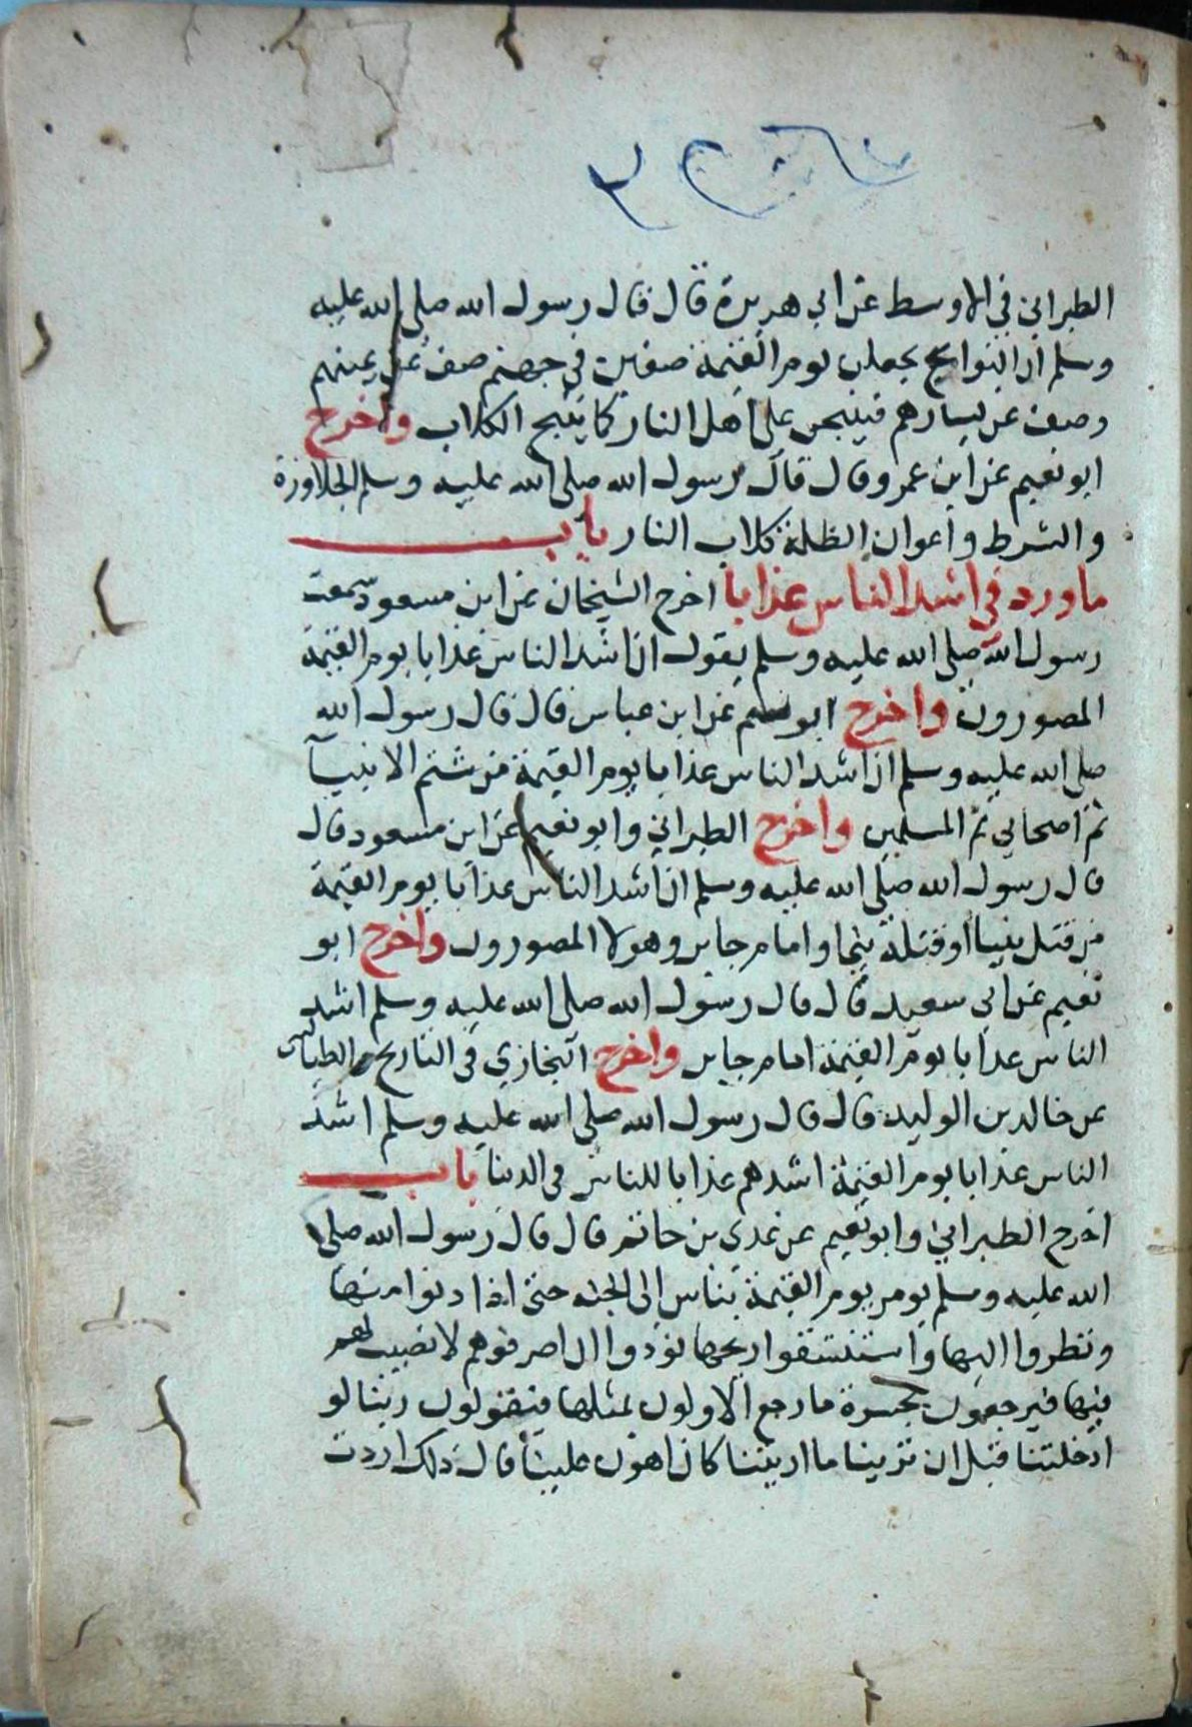 الطبراني في الاوسط عن ابي هريرة قال قال رسول الله صلى الله عليه
وسلم ان النوايح يجعلن يوم القيمة صفين في جهنم صف عن يمينهم
وصف عن يسارهم فينبحن على اهل النار كما ينبح الكلاب واخرج
ابو نعيم عن ابن عمرو قال قال رسول الله صلى الله عليه وسلم الجلاوزة
والشرط واعوان الظلمة كلاب النار باب
ما ورد في اشد الناس عذابا اخرج الشيخان عن ابن مسعود سمعت
رسول الله صلى الله عليه وسلم يقول ان اشد الناس عذابا يوم القيمة
المصورون واخرج ابو نعيم عن ابن عباس قال قال رسول الله
صلى الله عليه وسلم ان اشد الناس عذابا يوم القيمة من شتم الانبيآ
ثم اصحابي ثم المسلمين واخرج الطبراني وابو نعيم عن ابن مسعود قال
قال رسول الله صلى الله عليه وسلم ان اشد الناس عذابا يوم القيمة
من قتل نبيا او قتلة نبي او امام جاير وهولا المصورون واخرج ابو
نعيم عن ابي سعيد قال قال رسول الله صلى الله عليه وسلم اشد
الناس عذابا يوم القيمة امام جاير واخرج البخاري في التاريخ والطيالسي
عن خالد بن الوليد قال قال رسول الله صلى الله عليه وسلم اشد
الناس عذابا يوم القيمة اشدهم عذابا للناس في الدنيا باب
اخرج الطبراني وابو نعيم عن عدي بن حاتم قال قال رسول الله صلى
الله عليه وسلم يومر يوم القيمة بناس الى الجنه حتى اذا دنوا منها
ونظروا اليها واستنشقوا ريحها نودوا ان اصرفوهم لا نصيب لهم
فيها فيرجعون بحسرة ما رجع الاولون بمثلها فيقولون ربنا لو
ادخلتنا قبل ان ترينا ما اريتنا كان اهون علينا قال ذلك اردت